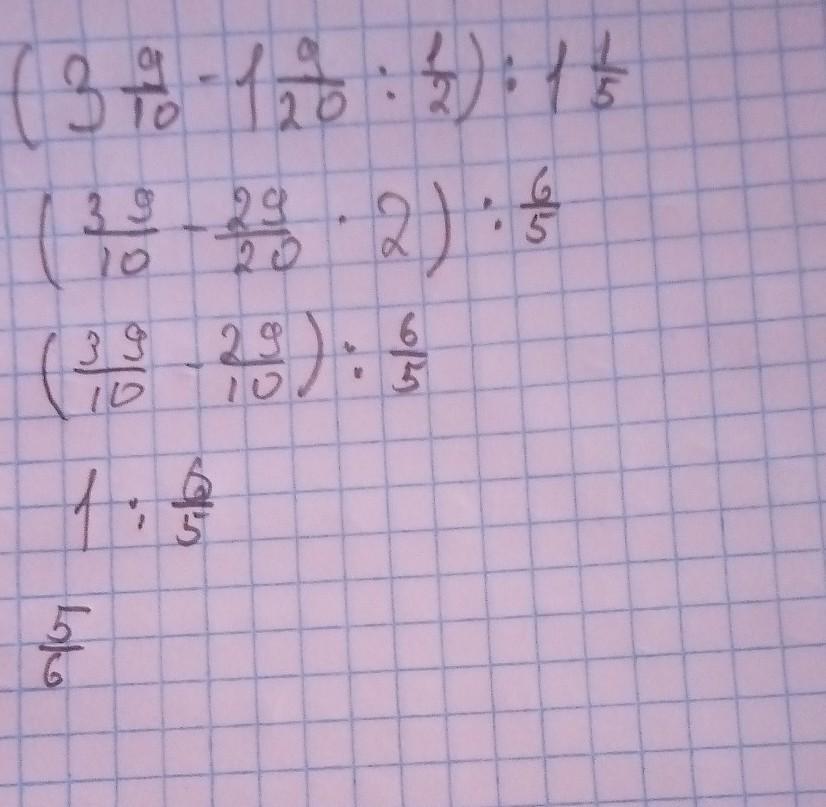 (3 9/10 - 1 9/20 : 1/2) : 1 1/5
(39/10 - 29/20 · 2) : 6/5
(39/10 - 29/10) : 6/5
1 : 6/5
5/6